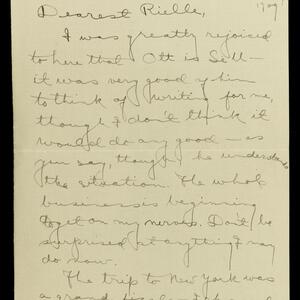 Dearest Rielle,
I was greatly rejoiced
to here that Ott is Still —
it was very good of him
to think of writing for me,
though I don't think it
would do any good — as
you say, though he understands
the situation. The whole
business is beginning
to get on my nerves. Don't be
surprised at anything I may
do now.
The trip to New York was
a grand